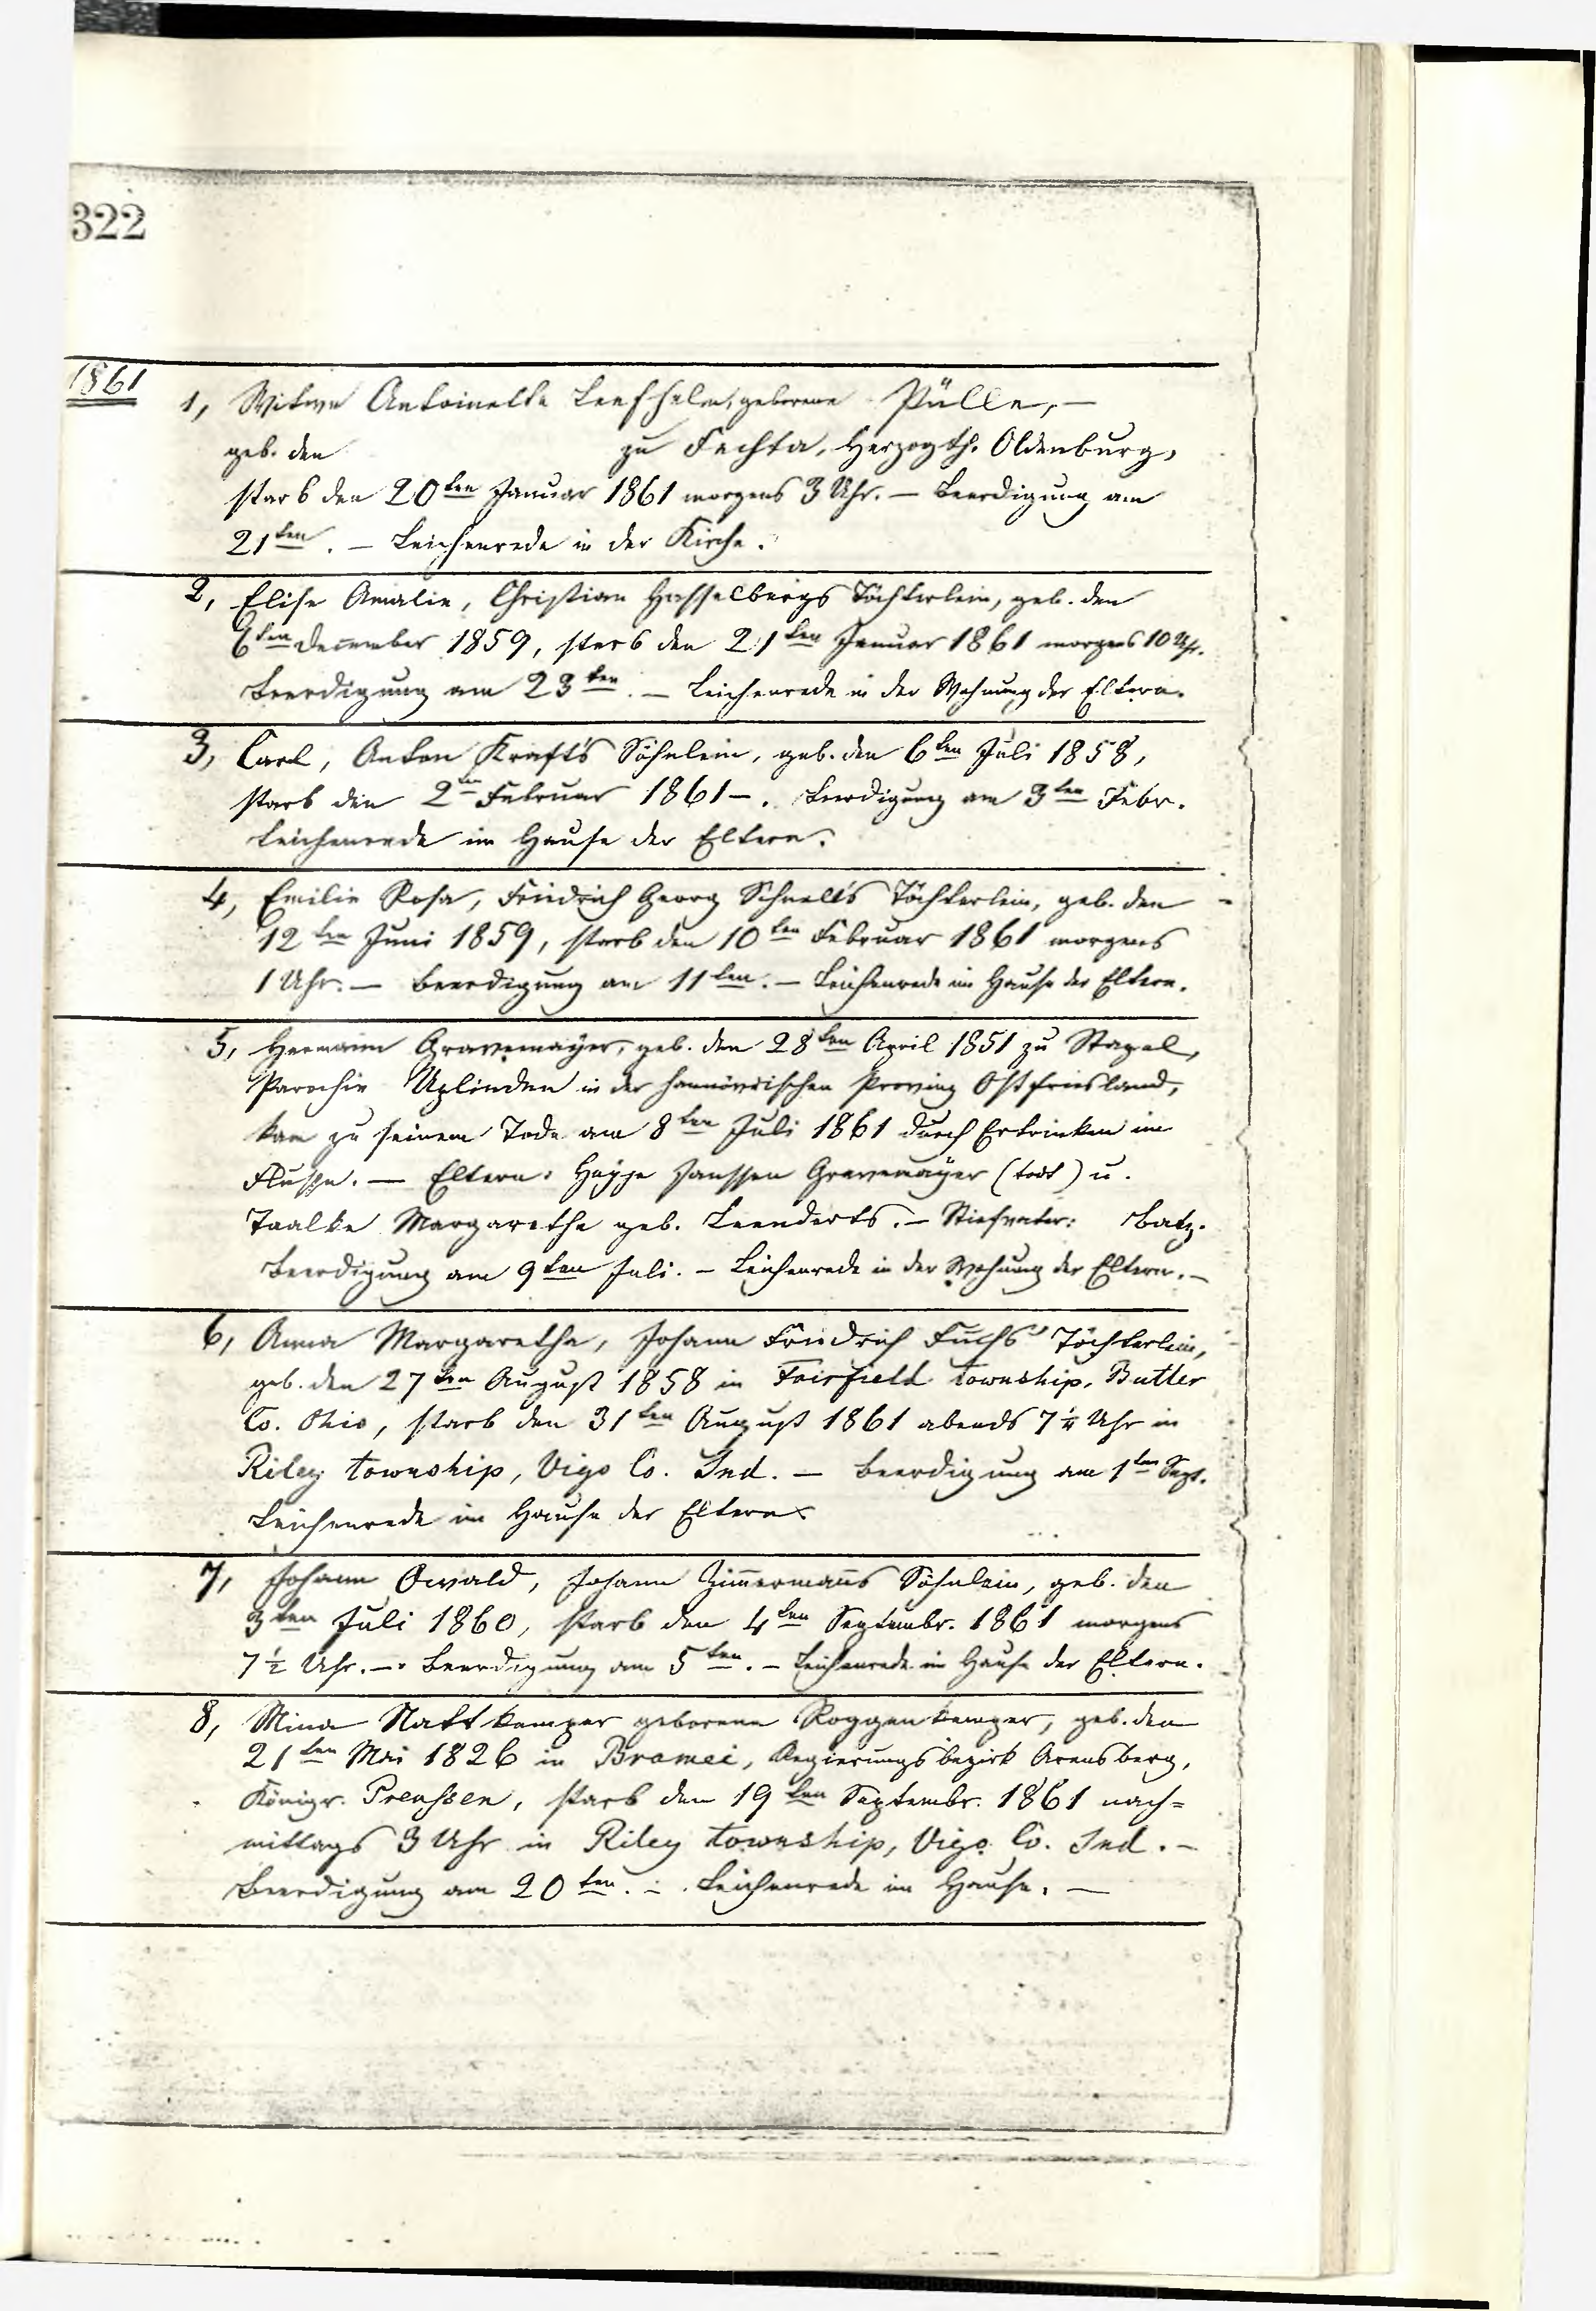 322
1861
1, Witwe Antoinette geborene Pülle, —
geb. den zu Fechta, Herzogth. Oldenburg,
starb den 20ten Januar 1861 morgens 3 Uhr. — Beerdigung am
21ten. — Leichenrede in der Kirche.
2, Elise Amalie, Christian Hasselbergs Töchterlein, geb. den
6ten December 1859, starb den 21ten Januar 1861 morgens 10 Uhr.
Beerdigung am 23ten. — Leichenrede in der Wohnung der Eltern.
3, Carl, Anton Kraft's Söhnlein, geb. den 6ten Juli 1858,
starb den 2ten Februar 1861 —. Beerdigung am 3ten Febr.
Leichenrede im Hause der Eltern.
4, Emilie Rosa, Friedrich Georg Schnell's Töchterlein, geb. den
12ten Juni 1859, starb den 10ten Februar 1861 morgens
1 Uhr. — Beerdigung am 11ten. — Leichenrede im Hause der Eltern.
5, Hermann Gravemayer, geb. den 28ten April 1851 zu Stapel,
Parochie Uplinden in der hannövrischen Provinz Ostfriesland,
kam zu seinem Tode am 8ten Juli 1861 durch Ertrinken im
Flusse. — Eltern: Janssen Gravemayer (todt) u.
Taalke Margarethe geb. Leenderts. — Stiefvater: Batz.
Beerdigung am 9ten Juli. — Leichenrede in der Wohnung der Eltern. —
6, Anna Margaretha, Johann Friedrich Fuchs' Töchterlein,
geb. den 27ten August 1858 in Fairfield township, Butler
Co. Ohio, starb den 31ten August 1861 abends 7 1/4 Uhr in
Riley township, Vigo Co. Ind. — Beerdigung am 1ten Sept.
Leichenrede im Hause der Eltern.
7, Johann Oswald, Johann Zimmermanns Söhnlein, geb. den
3ten Juli 1860, starb den 4ten Septembr. 1861 morgens
7½ Uhr. — Beerdigung am 5ten. — Leichenrede im Hause der Eltern.
8, Mina Nattkemper geborene Roggenkemper, geb. den
21ten Mai 1826 in Bramei, Regierungsbezirk Arensberg,
Königr. Preussen, starb den 19ten Septembr. 1861 nach=
mittags 3 Uhr in Riley township, Vigo Co. Ind. —
Beerdigung am 20ten. — Leichenrede im Hause. —